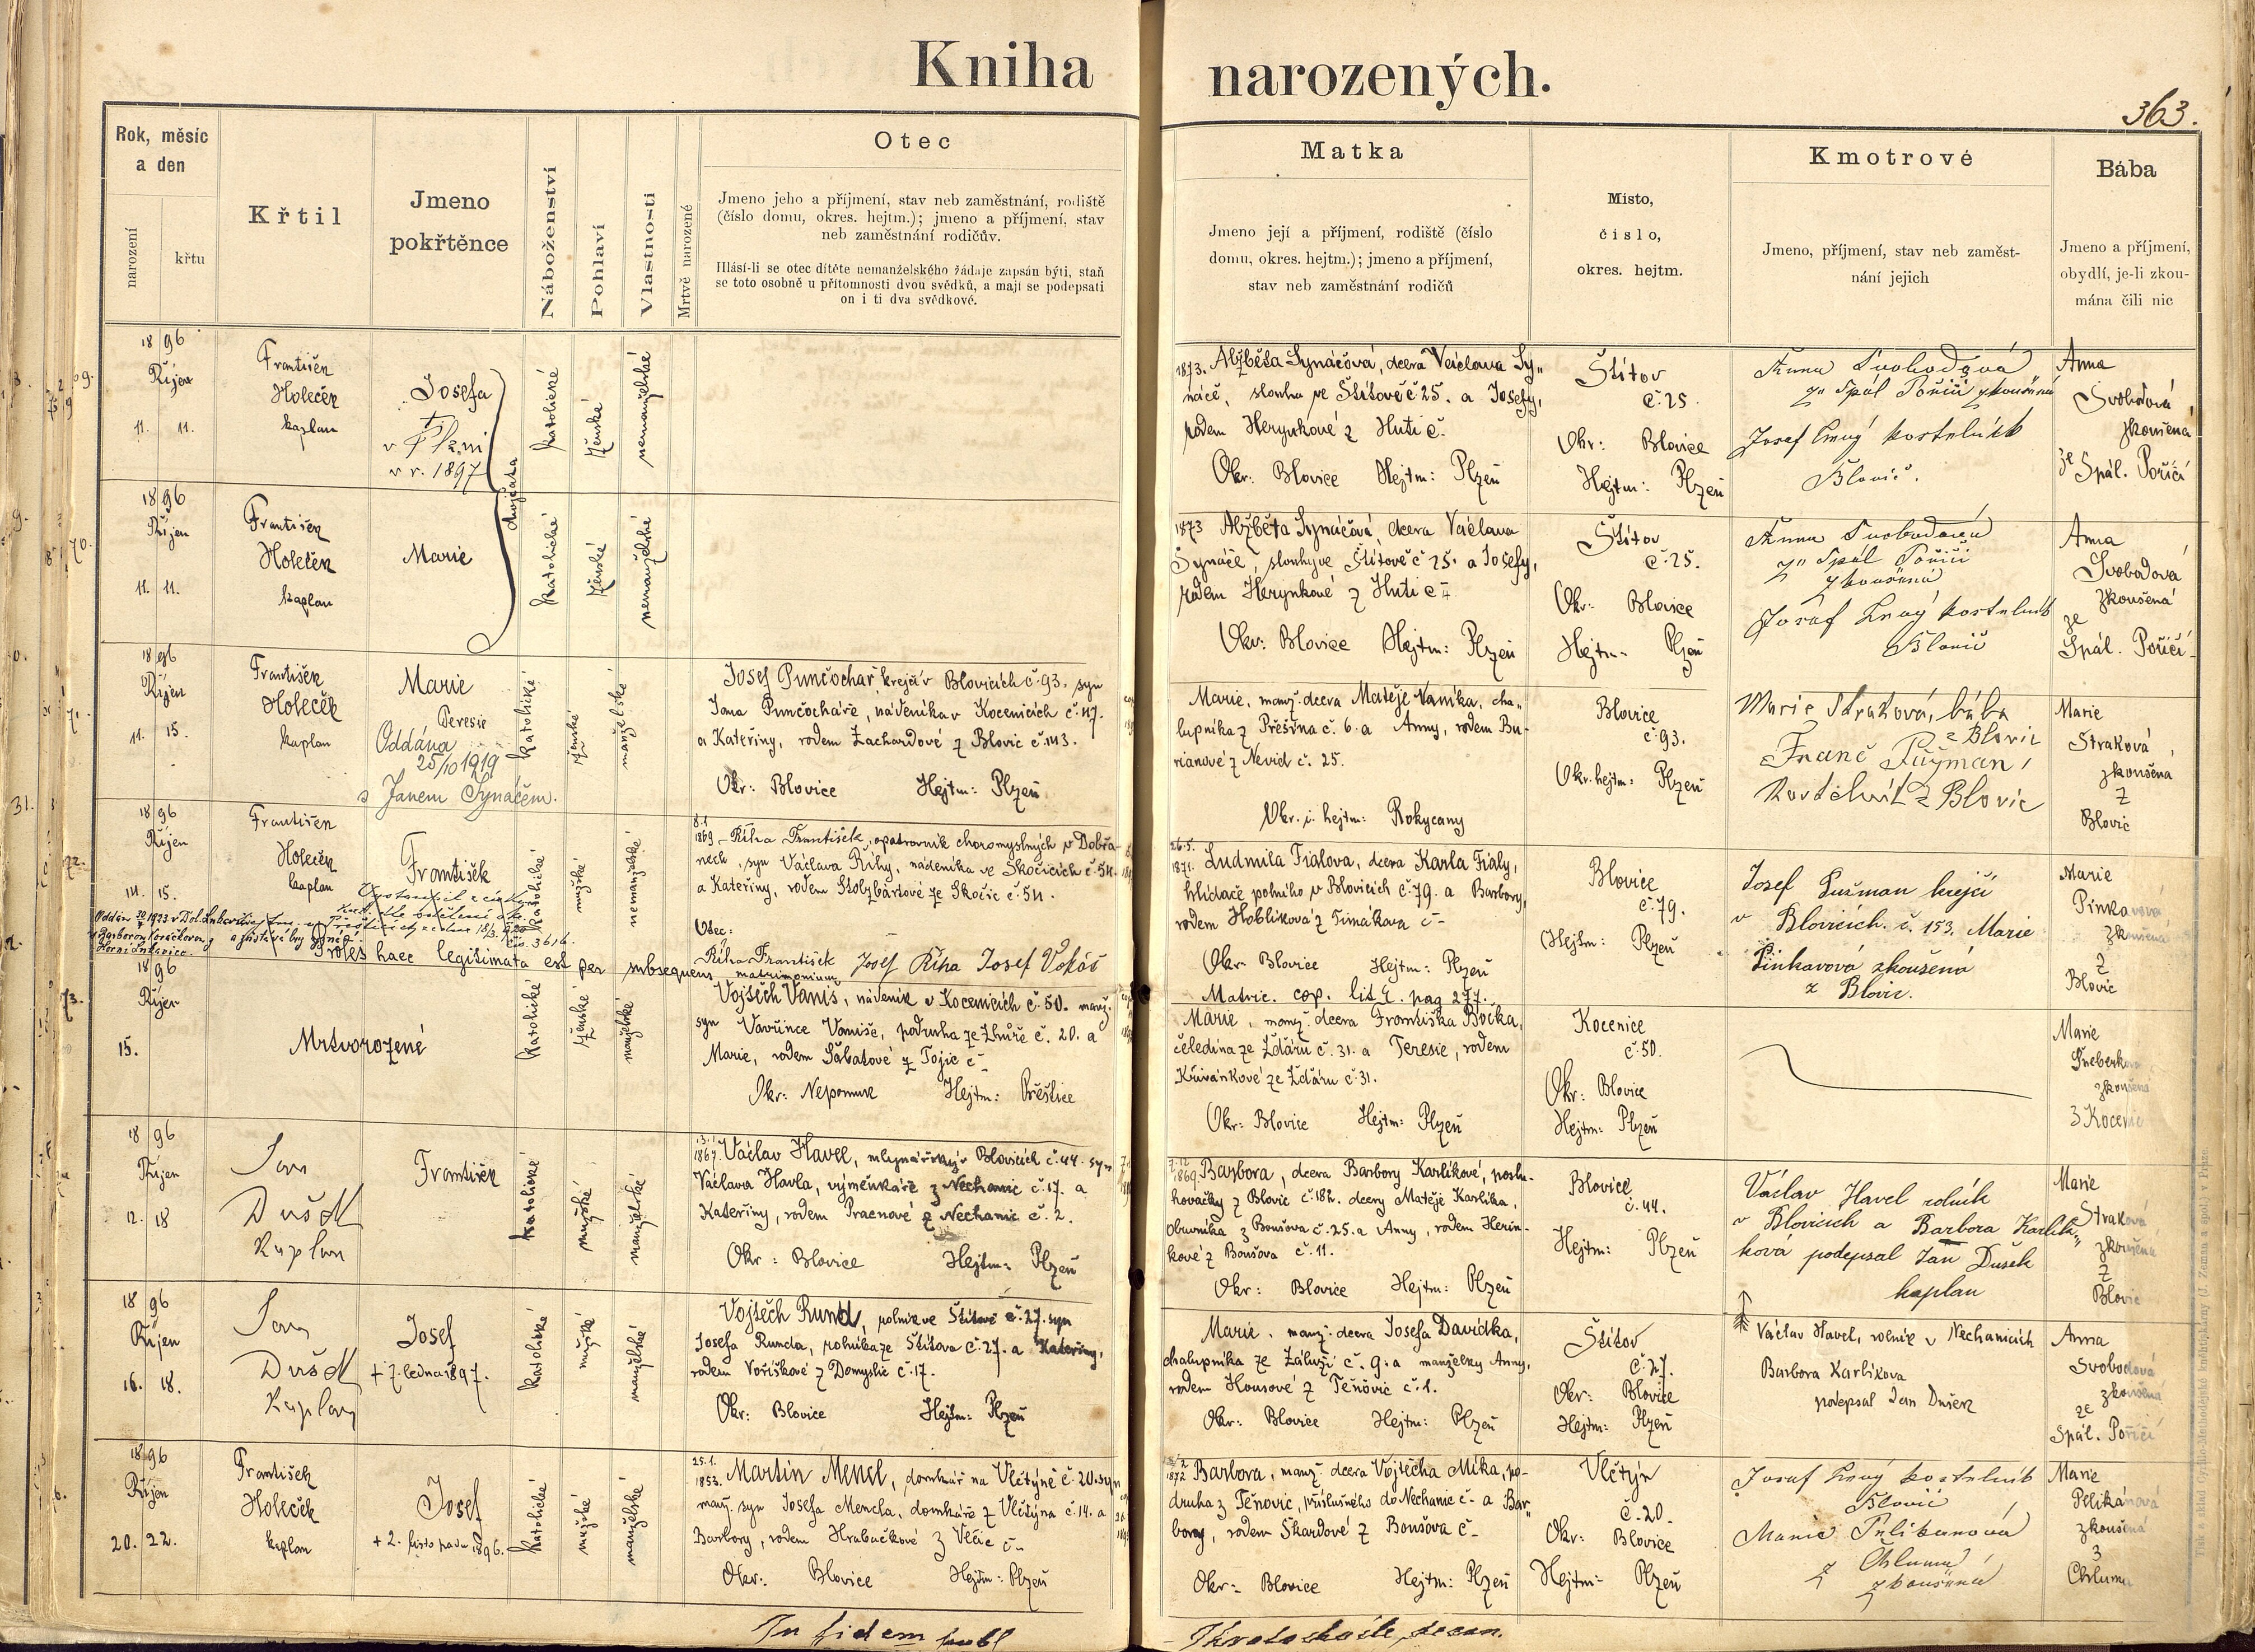 Kniha narozených.
363.
Rok, měsíc
a den
narození
křtu
Křtil
Jmeno
pokřtěnce
Náboženství
Pohlaví
Vlastnosti
Mrtvě narozené
Otec
Jmeno jeho a příjmení, stav neb zaměstnání, rodiště
(číslo domu, okres. hejtm.); jmeno a příjmení, stav
neb zaměstnání rodičův.
Hlásí-li se otec dítěte nemanželského žádaje zapsán býti, staň
se toto osobně u přítomnosti dvou svědků, a mají se podepsati
on i ti dva svědkové.
Matka
Jmeno její a příjmení, rodiště (číslo
domu, okres. hejtm.); jmeno a příjmení,
stav neb zaměstnání rodičů
Místo,
číslo,
okres. hejtm.
Kmotrové
Jmeno, příjmení, stav neb zaměst-
nání jejich
Bába
Jmeno a příjmení,
obydlí, je-li zkou-
mána čili nic
1896
Říjen
11. 11.
František
Holeček
kaplan
Josefa
†
v Plzni
v r. 1897
dvojčata
katolické
ženské
nemanželské
1873. Alžběta Synáčová, dcera Václava Sy„
náče, slouhy ve Štítově č. 25. a Josefy,
rodem Herynkové z Huti č.
Okr: Blovice Hejtm: Plzeň
Štítov
č. 25.
Okr: Blovice
Hejtm: Plzeň
Anna Svobodová
z„ Spál Poříčí zkoušená
Josef Levý kostelník
Blovic.
Anna
Svobodová
zkoušená
ze Spál. Poříčí
70.
1896
Říjen
11. 11.
František
Holeček
kaplan
Marie
katolické
ženské
nemanželské
1873 Alžběta Synáčová, dcera Václava
Synáče, slouhy ve Štítově č 25. a Josefy,
rodem Herynkové z Huti č –
Okr: Blovice Hejtm: Plzeň
Štítov
č. 25.
Okr: Blovice
Hejtm- Plzeň
Anna Svobodová
z„ Spál Poříčí
zkoušená
Josef Levý kostelník
Blovic
Anna
Svobodová
zkoušená
ze
Spál. Poříčí
71.
1896
Říjen
11. 15.
František
Holeček
kaplan
Marie
Teresie
Oddána
25/10 1919
s Janem Synáčem.
katolické
ženské
manželské
Josef Punčochář, krejčí v Blovicích č. 93. syn
Jana Punčocháře, nádeníka v Kocenicích č. 47.
a Kateřiny, rodem Zachardové z Blovic č. 143.
Okr: Blovice Hejtm: Plzeň
Marie, manž. dcera Matěje Vaníka, cha„
lupníka z Přešína č. 6. a Anny, rodem Bu-
rianové z Nevid č. 25.
Okr. i. hejtm: Rokycany
Blovice
č. 93.
Okr. hejtm: Plzeň
Marie Straková, bába
z Blovic
Franc Gužman,
Kostelník z Blovic
Marie
Straková,
zkoušená
z
Blovic
72.
1896
Říjen
14. 15.
František
Holeček
kaplan
František
katolické
mužské
nemanželské
8.1.
1869. Říha František, opatrovník choromyslných v Dobřa-
nech, syn Václava Říhy, nádeníka ve Skočicích č. 54.
a Kateřiny, rodem Stolzbártové ze Skočic č. 54.
Otec:
Říha František Josef Říha Josef Vokáč
Proles haec legitimata est per subsequens matrimonium
26.5.
1871. Ludmila Fialova, dcera Karla Fialy,
hlídače polního v Blovicích č. 79. a Barbory,
rodem Hoblíkové z Timákova č –
Okr: Blovice Hejtm: Plzeň
Matric. cop. lit. E. pag 277.
Blovice
č. 79.
Hejtm: Plzeň
Josef Gužman krejčí
v Blovicích. č. 153. Marie
Pinkavová zkoušená
z Blovic.
Marie
Pinkavová
zkoušená
z
Blovic
73.
1896
Říjen
15.
Mrtvorozené
katolické
ženské
manželské
Vojtěch Vaniš, nádeník v Kocenicích č. 50. manž.
syn Vavřince Vaniše, podruha ze Zhůře č. 20. a
Marie, rodem Šabatové z Tojic č –
Okr: Nepomuk Hejtm: Přeštice
Marie, manž. dcera Františka Bočka,
čeledína ze Žďáru č. 31. a Teresie, rodem
Křivánkové ze Žďáru č. 31.
Okr: Blovice Hejtm: Plzeň
Kocenice
č. 50.
Okr: Blovice
Hejtm: Plzeň
Marie
zkoušená
z Kocenic
1896
Říjen
12. 18
Jan
Dušek
Kaplan
František
katolické
mužské
manželské
1867. Václav Havel, mlynářský v Blovicích č. 44. syn
Václava Havla, výměnkáře z Nechanic č. 17. a
Kateřiny, rodem Pracnové z Nechanic č. 2.
Okr: Blovice Hejtm: Plzeň
7.12
1869. Barbora, dcera Barbory Karlíkové, poslu-
hovačky z Blovic č. 182. dcery Matěje Karlíka,
obuvníka z Boušova č. 25. a Anny, rodem Herin-
kové z Boušova č. 11.
Okr: Blovice Hejtm: Plzeň
Blovice
č. 44.
Hejtm: Plzeň
Václav Havel rolník
v Blovicích a Barbora Karlík„
ková podepsal Jan Dušek
kaplan
Marie
Straková
zkoušená
z
Blovic
1896
Říjen
16. 18.
Jan
Dušek
Kaplan
Josef
+ 7. ledna 1897.
katolické
mužské
manželské
Vojtěch Rund, rolník ve Štítově č. 27. syn
Josefa Runda, rolníka ze Štítova č. 27. a Kateřiny,
rodem Voříškové z Domyslic č. 17.
Okr: Blovice Hejtm: Plzeň
Marie, manž. dcera Josefa Davídka,
chalupníka ze Záluží č. 9. a manželky Anny,
rodem Housové z Těňovic č. 1.
Okr: Blovice Hejtm: Plzeň
Štítov
č. 27.
Okr: Blovice
Hejtm: Plzeň
Václav Havel, rolník v Nechanicích
Barbora Karlíkova
podepsal Jan Dušek
Anna
Svobodová
zkoušená
ze
Spál. Poříčí
1896
Říjen
20. 22.
František
Holeček
kaplan
Josef
+ 2. listopadu 1896.
katolické
mužské
manželské
25.1.
1853. Martin Mencl, domkář na Vlčtýně č. 20. syn
manž. syn Josefa Mencla, domkáře z Vlčtýna č. 14. a
Barbory, rodem Hrabačkové z Vlčic č –
Okr: Blovice Hejtm: Plzeň
1872 Barbora, manž. dcera Vojtěcha Míka, po-
druha z Těňovic, příslušného do Nechanic č – a Bar„
bory, rodem Škardové z Boušova č –
Okr: Blovice Hejtm: Plzeň
Vlčtýn
č. 20.
Okr: Blovice
Hejtm- Plzeň
Josef Levý kostelník
Blovic
Marie Pelikanová
z Chlumu
zkoušená
Marie
Pelikánová
zkoušená
z
Chlumu
In fidem publ